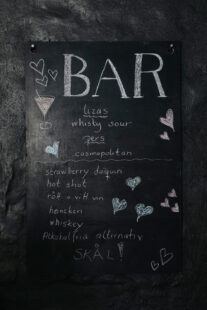 BAR
lizas
whisky sour
pers
cosmopolitan
strawberry daquiri
hot shot
rött + vitt vin
heineken
whiskey
Alkoholfria alternativ
SKÅL!